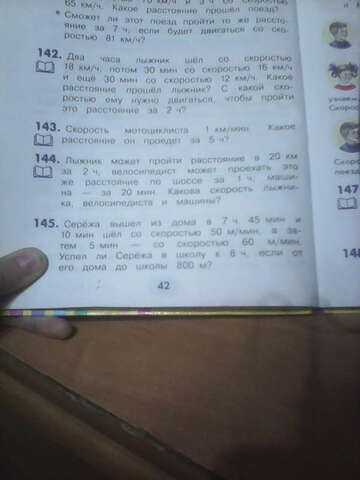 65 км/ч. Какое расстояние прошёл поезд?
* Сможет ли этот поезд пройти то же расстоя-
ние за 7 ч, если будет двигаться со ско-
ростью 81 км/ч?
142. Два часа лыжник шёл со скоростью
18 км/ч, потом 30 мин со скоростью 16 км/ч
и ещё 30 мин со скоростью 12 км/ч. Какое
расстояние прошёл лыжник? С какой ско-
ростью ему нужно двигаться, чтобы пройти
это расстояние за 2 ч?
143. Скорость мотоциклиста 1 км/мин. Какое
расстояние он проедет за 5 ч?
144. Лыжник может пройти расстояние в 20 км
за 2 ч, велосипедист может проехать это
же расстояние по шоссе за 1 ч, маши-
на — за 20 мин. Какова скорость лыжни-
ка, велосипедиста и машины?
145. Серёжа вышел из дома в 7 ч 45 мин и
10 мин шёл со скоростью 50 м/мин, а за-
тем 5 мин — со скоростью 60 м/мин.
Успел ли Серёжа в школу к 8 ч, если от
его дома до школы 800 м?
42
147
148